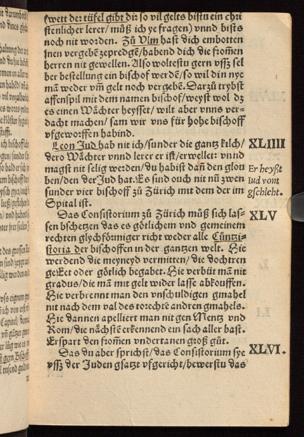 (wett der tüfel gibt dir so vil gelts bistu ein chri
stenlicher lerer/ müß ich ye fragen) vnnd bists
noch nit worden. Zů Vlm hast dich embotten
inen vergebē zepredgē/ habend dich die frommē
herren mit gewellen. Also woltestu gern vsser sel
ber bestellung ein bischof werdē/ so wil din nye
mā weder vm̄ gelt noch vergebē. Darzů trybst
affenspil mit dem namen bischof/ weyst wol dz
es einen Wächter heysset/ wilt aber vnns ver-
dacht machen/ sam wir vns für hohe bischoff
vfgeworffen habind.
Leon Jud hab nit ich/ sunder die gantz kilch/
XLIIII
dero Wächter vnnd lerer er ist/ erwellet: vnnd
magst nit selig werden/ du habist dañ den glou
ben/ den der Jud hat. Es sind ouch nit nü zwen
sunder vier bischoff zů Zürich mit dem der im
Spital ist.
Er heyßt
iud vom
gschleht.
Das Consistorium zů Zürich můß sich las-
XLV
sen bschetzen das es götlichem vnd gemeinem
rechten glychförmiger nit weder alle Cünzi-
storia der bischoffen in der gantzen welt. Hie
werdend die meyneyd vermitten/ die dochtren
geket oder götlich begabet. Hie verbüt mā nit
gradus/ die mā mit gelt wider lasse abkouffen.
Hie verbrennt man den vnschuldigen gmahel
nit nach dem val des torechtē andern gmahels.
Hie dannen apelliert man nit gen Mentz vnd
Rom/ die nächstē erkennend ein sach aller bast.
Erspart den frommē vndertanen groß gůt.
Das du aber sprichst/ das Consistorium sye
XLVI.
vsß der Juden gsatze vfgericht/ bewerstu das